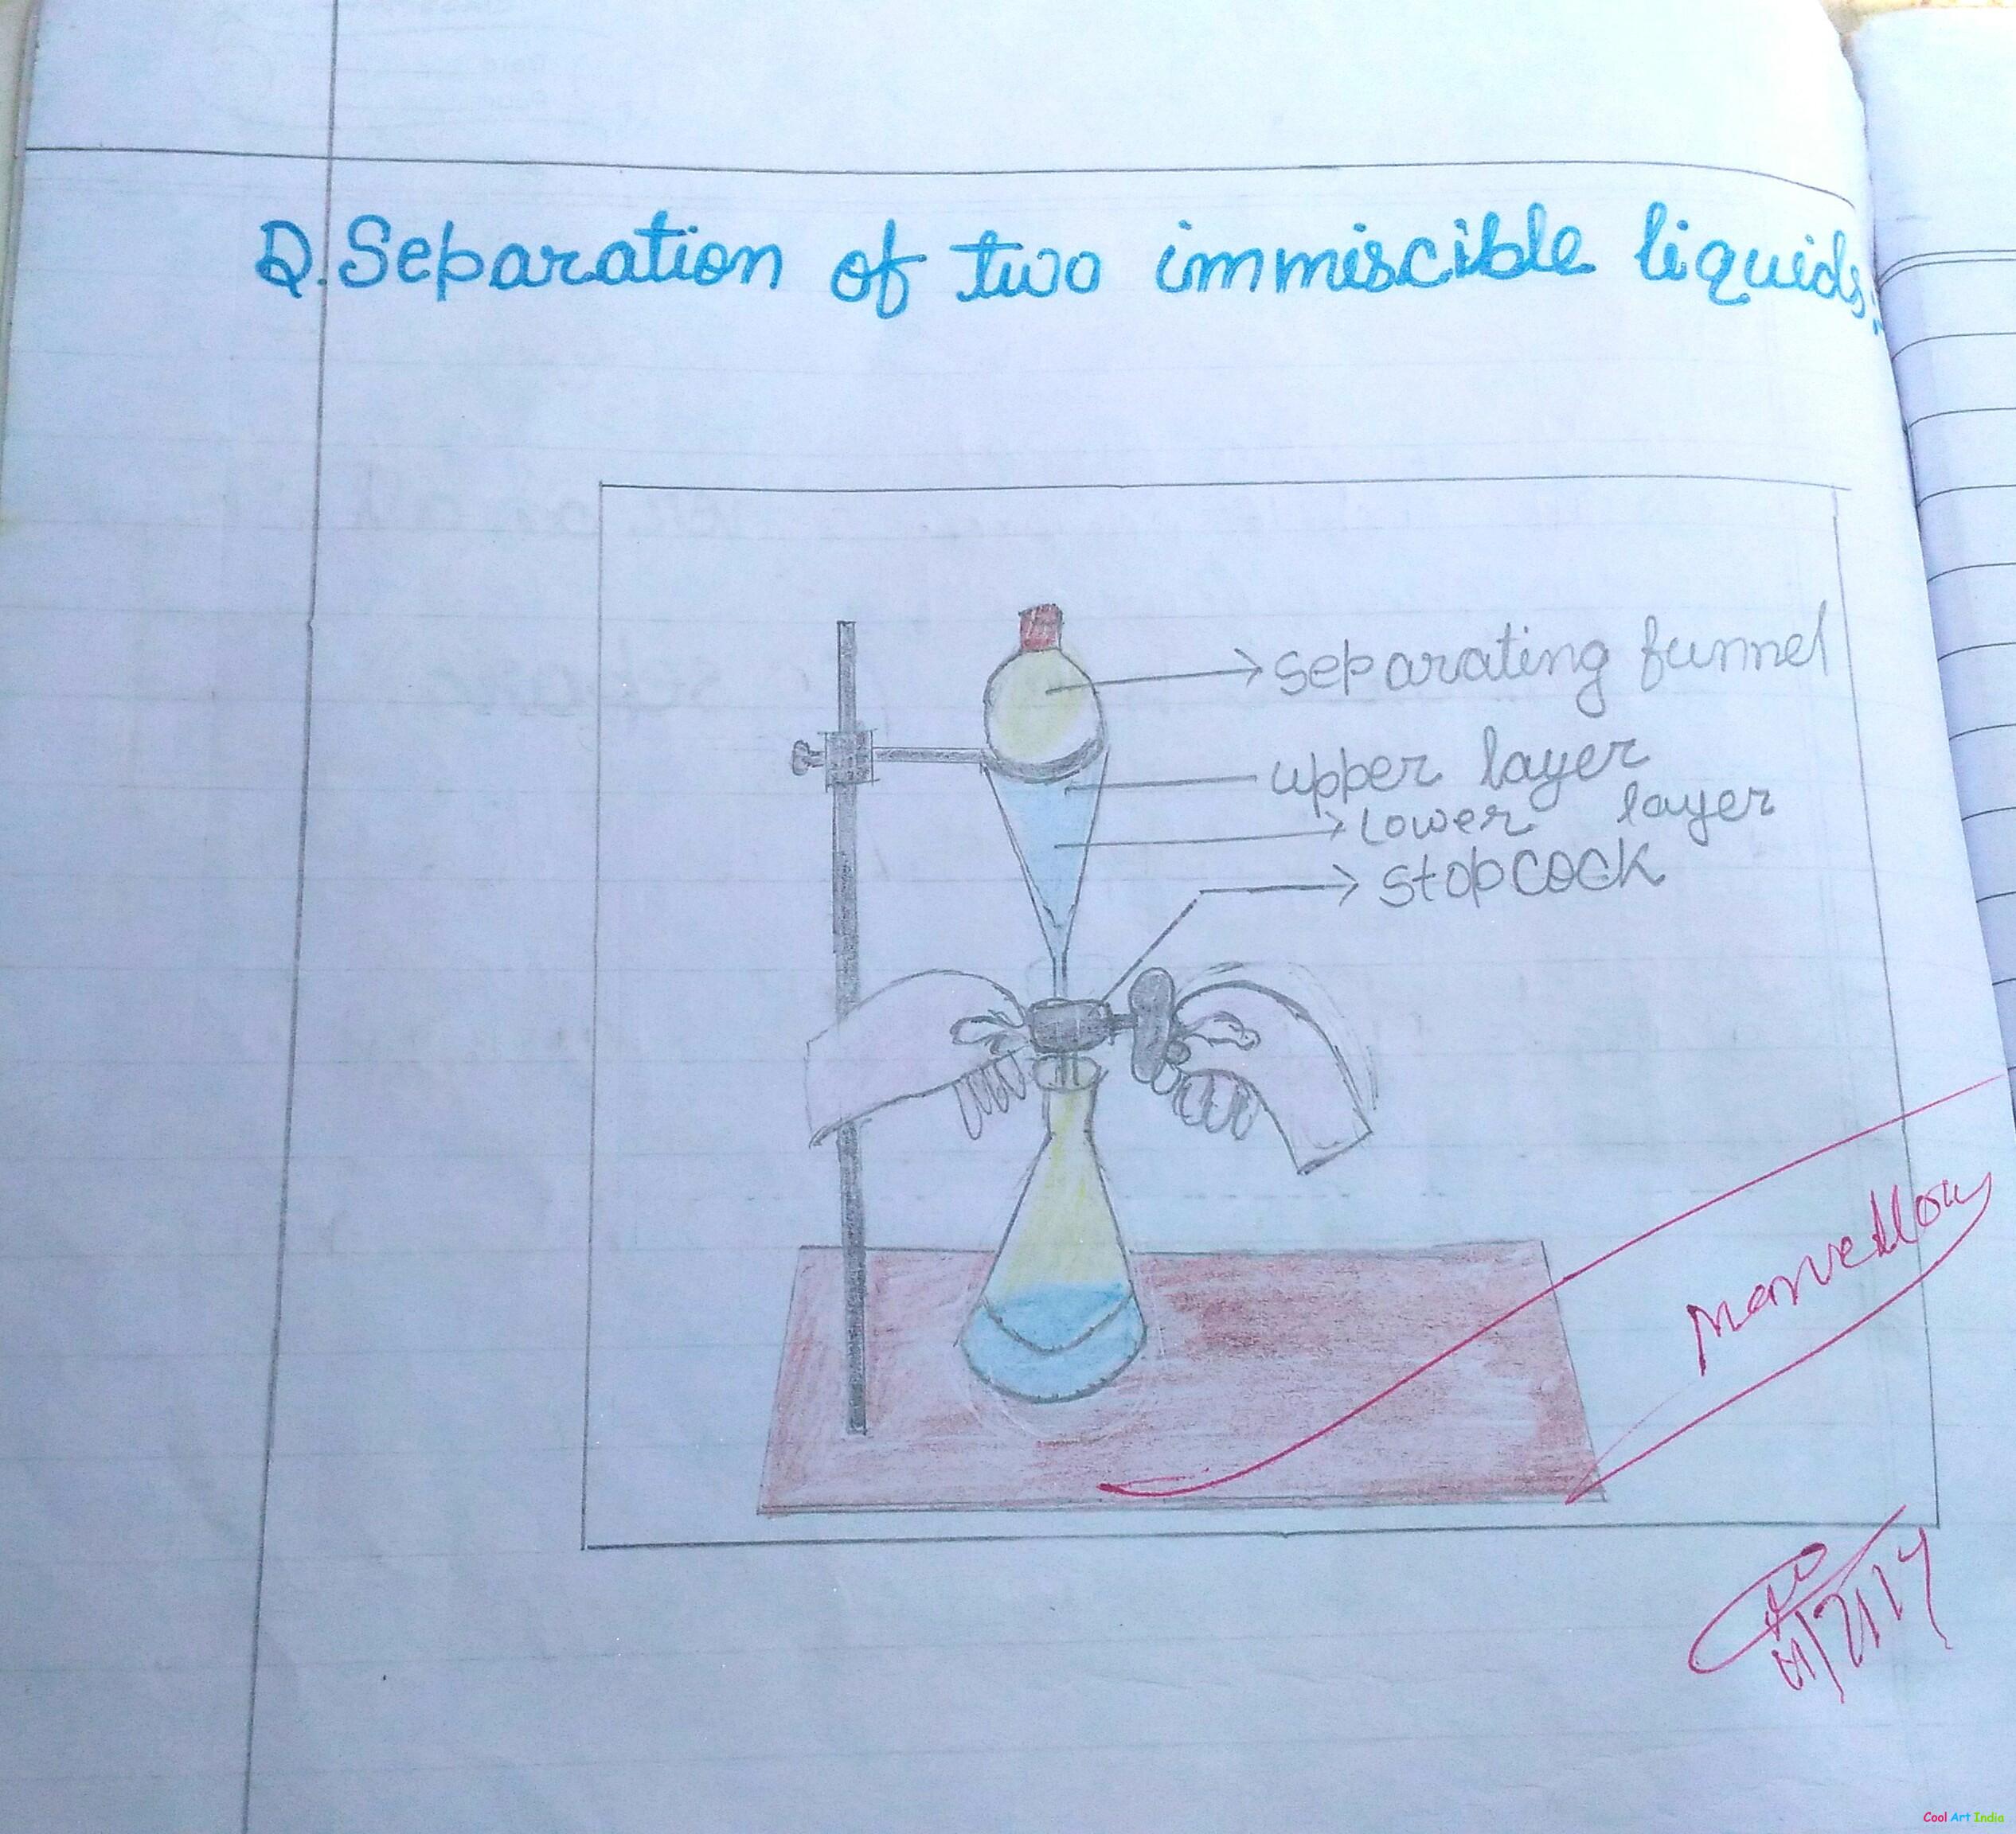 Q. Separation of two immiscible liquids:
separating funnel
upper layer
Lower layer
stop cock
Marvellous
Cool Art India